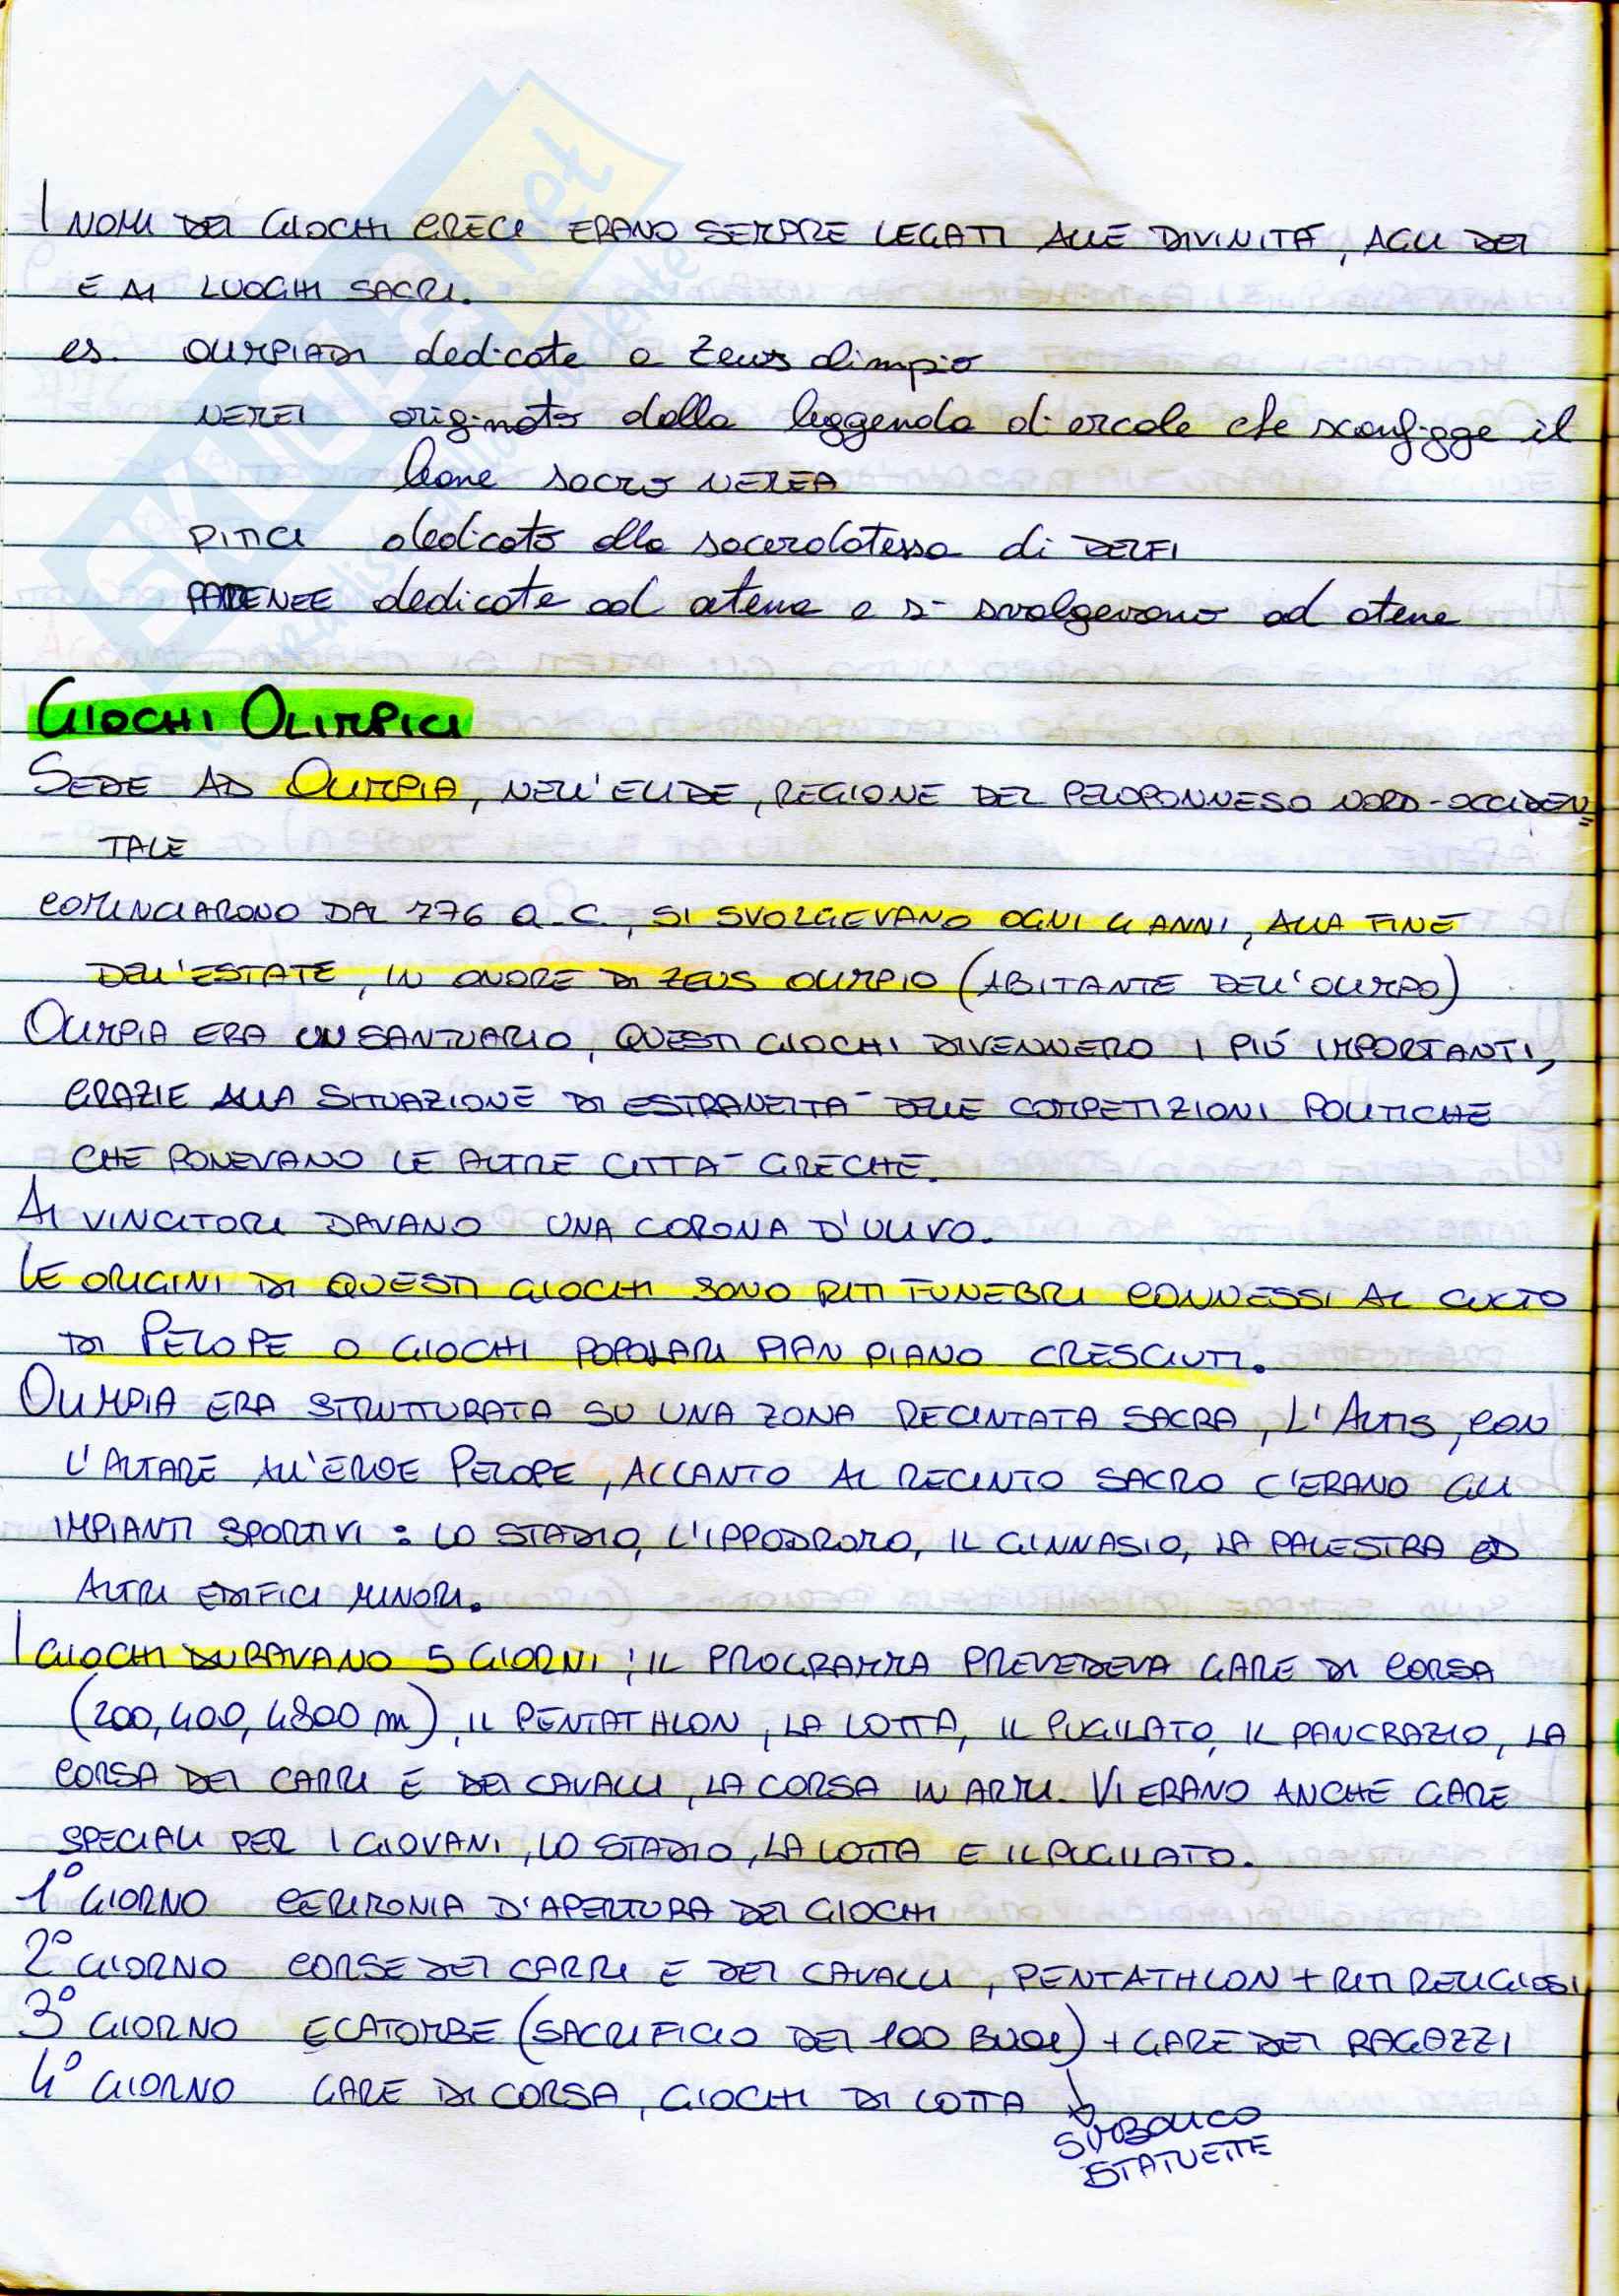 I NOMI DEI GIOCHI GRECI ERANO SEMPRE LEGATI ALLE DIVINITÀ, AGLI DEI
E AI LUOGHI SACRI.
es. OLIMPIADI dedicate a Zeus olimpio
NEMEI originato dalla leggenda di ercole che sconfigge il
leone sacro NEMEA
PITICI dedicato alla sacerdotessa di DELFI
dedicate ad atena e si svolgevano ad atene
GIOCHI OLIMPICI
SEDE AD OLIMPIA, NELL'ELIDE, REGIONE DEL PELOPONNESO NORD-OCCIDEN
TALE
COMINCIARONO DAL 776 a.C., SI SVOLGEVANO OGNI 4 ANNI, ALLA FINE
DELL'ESTATE, IN ONORE DI ZEUS OLIMPIO (ABITANTE DELL'OLIMPO)
OLIMPIA ERA UN SANTUARIO, QUESTI GIOCHI DIVENNERO I PIÚ IMPORTANTI,
GRAZIE ALLA SITUAZIONE DI ESTRANEITA' DELLE COMPETIZIONI POLITICHE
CHE PONEVANO LE ALTRE CITTA' GRECHE.
AI VINCITORI DAVANO UNA CORONA D'ULIVO.
LE ORIGINI DI QUESTI GIOCHI SONO RITI FUNEBRI CONNESSI AL CULTO
DI PELOPE O GIOCHI POPOLARI PIAN PIANO CRESCIUTI.
OLIMPIA ERA STRUTTURATA SU UNA ZONA RECINTATA SACRA, L'ALTIS, CON
L'ALTARE ALL'EROE PELOPE, ACCANTO AL RECINTO SACRO C'ERANO GLI
IMPIANTI SPORTIVI: LO STADIO, L'IPPODROMO, IL GINNASIO, LA PALESTRA ED
ALTRI EDIFICI MINORI.
I GIOCHI DURAVANO 5 GIORNI; IL PROGRAMMA PREVEDEVA GARE DI CORSA
(200, 400, 4800 m), IL PENTATHLON, LA LOTTA, IL PUGILATO, IL PANCRAZIO, LA
CORSA DEI CARRI E DEI CAVALLI, LA CORSA IN ARMI. VI ERANO ANCHE GARE
SPECIALI PER I GIOVANI, LO STADIO, LA LOTTA E IL PUGILATO.
1° GIORNO CERIMONIA D'APERTURA DEI GIOCHI
2° GIORNO CORSE DEI CARRI E DEI CAVALLI, PENTATHLON + RITI RELIGIOSI
3° GIORNO ECATOMBE (SACRIFICIO DEI 100 BUOI) + GARE DEI RAGAZZI
4° GIORNO GARE DI CORSA, GIOCHI DI LOTTA
SIMBOLICO
STATUETTE